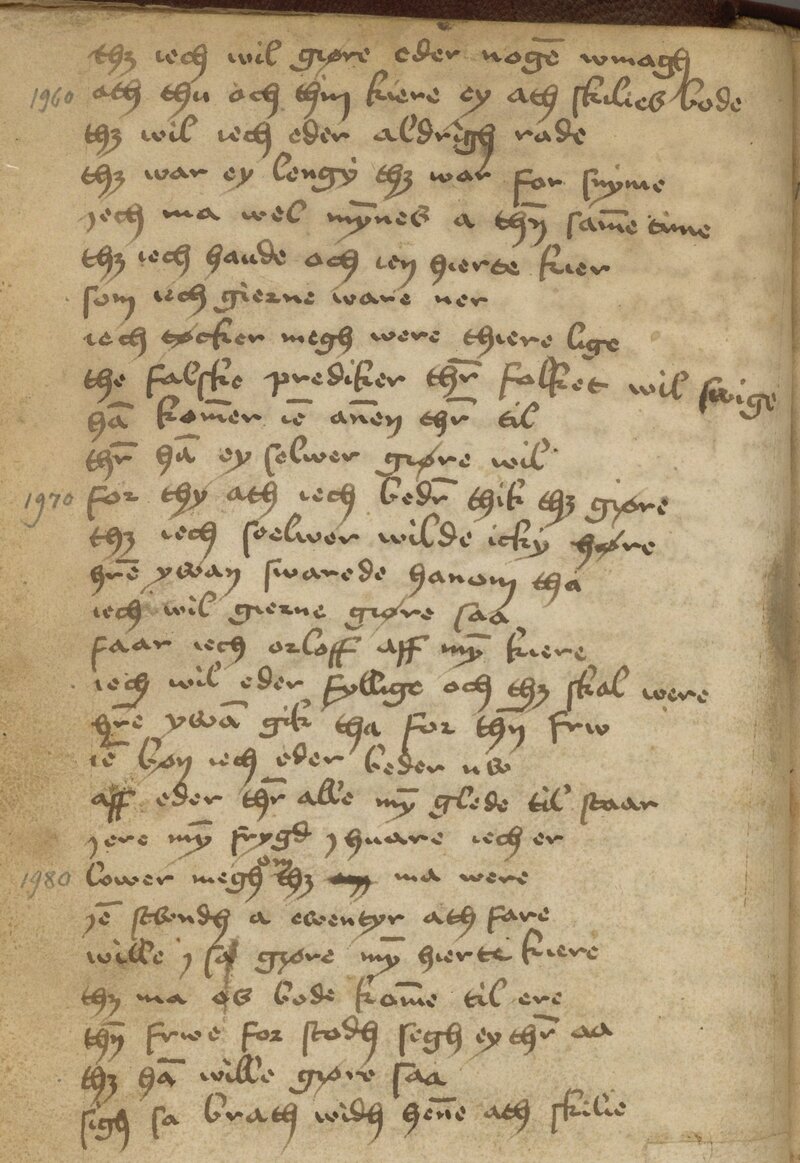 thꝫ iech wil gjøre eder nogē wmagh
1960 ath thu och thin kiere ey ath skilies bode
thꝫ wil iech eder aldrigh rade
thꝫ war ey lengÿ thꝫ war for snyme
jech ma wel mȳnes a thn̄ sam̄e time
thꝫ iech haude och ien hierte kier
som iech gierne ware ner
iech tøcker megh were thiere lige
the falske prediker thr̄ folket wil swige
hā kom̄er iē an̄en thr̄ til
thr̄ hā ey selwer gjøre wil
1970 for thy ath iech bedr̄ thik thꝫ gjøre
thꝫ iech soelwer wilde icky høre
hrē ywan swarede hanom tha
iech wil gierne gjøre saa
faar iech orloff aff mȳ kiere
iech wil eder fyllige och thꝫ skal were
hr̄e ywā gik tha for thn̄ frw
iē bøn iech eder beder nw
aff eder thr̄ alle mȳ glede til staar
jere mȳ frygd j huare iech er
1980 lower megh om thꝫ ma were
jē stwndh a ewentyr ath fare
wille j sa gjøre mȳ hierte kiere
thꝫ ma os bode kom̄e til ere
thn̄ frwe for stodh segh ey thr̄ aa
thꝫ hā wille gjøre saa
sigh sa brath widh hen̄e ath skilie